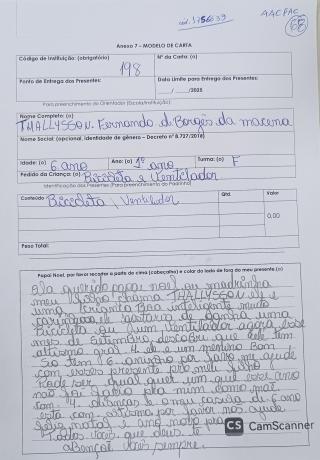 cód. 1756039
AACPAC
68
Anexo 7 – MODELO DE CARTA
Código de Instituição: (obrigatório)
198
Nº da Carta: (o)
Ponto de Entrega dos Presentes:
Data Limite para Entrega dos Presentes:
____/____/2025
Para preenchimento do Orientador (Escola/Instituição):
Nome Completo: (o)
THALLYSSON. Fernando di Borges da macena
Nome Social: (opcional, identidade de gênero – Decreto nº 8.727/2016)
Idade: (o) 6 ano
Ano: (o) 1º ano
Turma: (o) F
Pedido da Criança: (o) Bicicleta e Ventilador
Identificação dos Presentes (Para preenchimento do Padrinho)
Conteúdo
Bicicleta, Ventilador
Qtd.
Valor
0,00
Peso Total:
Papai Noel, por favor recortar a parte de cima (cabeçalho) e colar do lado de fora do meu presente.(o)
Ola querido papai noel ou madrinha
meu filho chama THALLYSSON ele e
uma criança Boa inteligente muito
carinhoso ele gostaria de ganha uma
Bicicleta ou um Ventilador agora esse
mes de Setembro descobri que ele tem
altismo gral 4 ele e um menino Bom
So tem 6 aninho por favor me ajude
com esses presente pro meu filho
Pode ser qual quer um que esse ano
não foi facio pra mim como mãe
com 4 crianças e o meu casula di 6 ano
esta com altismo por favor nos ajude
feliz natal e ano novo pra
Todos voces que deus te
abençoi voces sempre.
CS CamScanner